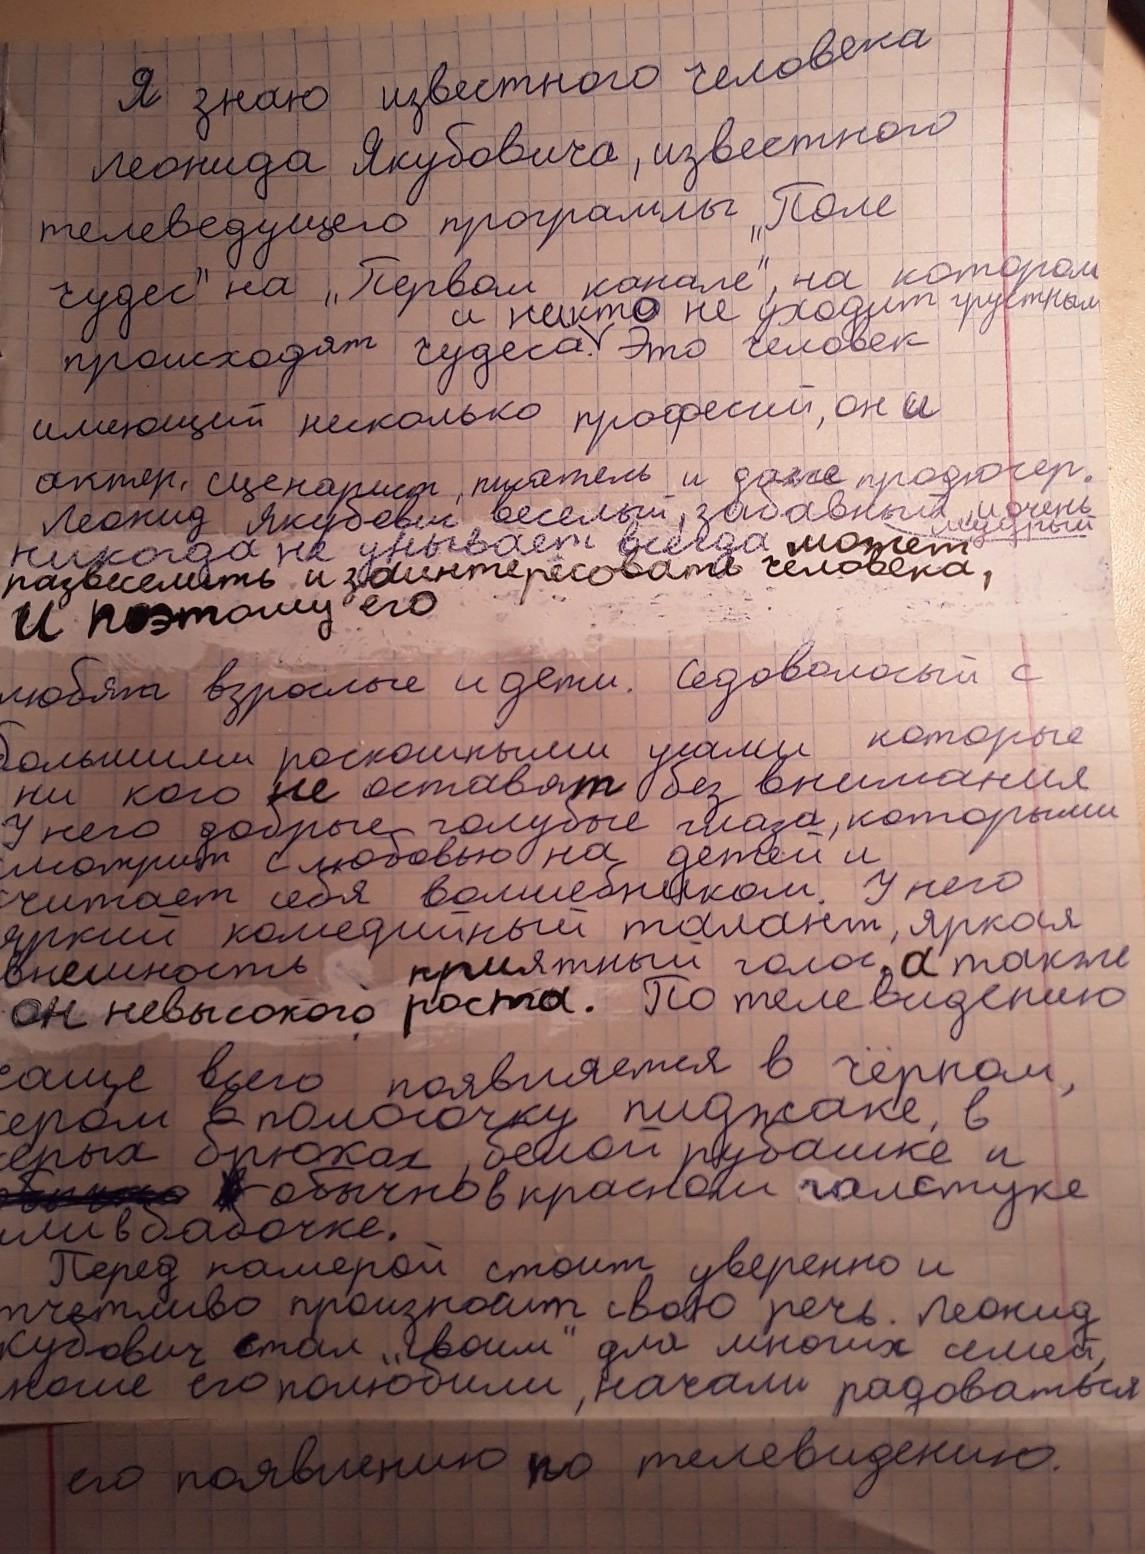 Я знаю известного человека
Леонида Якубовича, известного
телеведущего программы „Поле
чудес" на „Первом канале", на котором
и никто не уходит грустным
происходят чудеса. Это человек
имеющий несколько професий, он и
актер, сценарист, писатель и даже продюсер.
Леонид Якубович веселый, забавный, и очень
мудрый
никогда не унывает всегда может
развеселить и заинтересовать человека,
и поэтому его
любят взрослые и дети. Седоволосый с
большими роскошными усами которые
ни кого не оставят без внимания
У него добрые голубые глаза, которыми
смотрит с любовью на детей и
считает себя волшебником. У него
яркий комедийный талант, яркая
внешность приятный голос, а также
он невысокого роста. По телевидению
чаще всего появляется в чёрном,
сером в полосочку пиджаке, в
серых брюках, белой рубашке и
обычно в красном галстуке
или в бабочке.
Перед камерой стоит уверенно и
тчетливо произносит свою речь. Леонид
Якубович стал „своим" для многих семей,
многие его полюбили, начали радоваться
его появлению по телевидению.